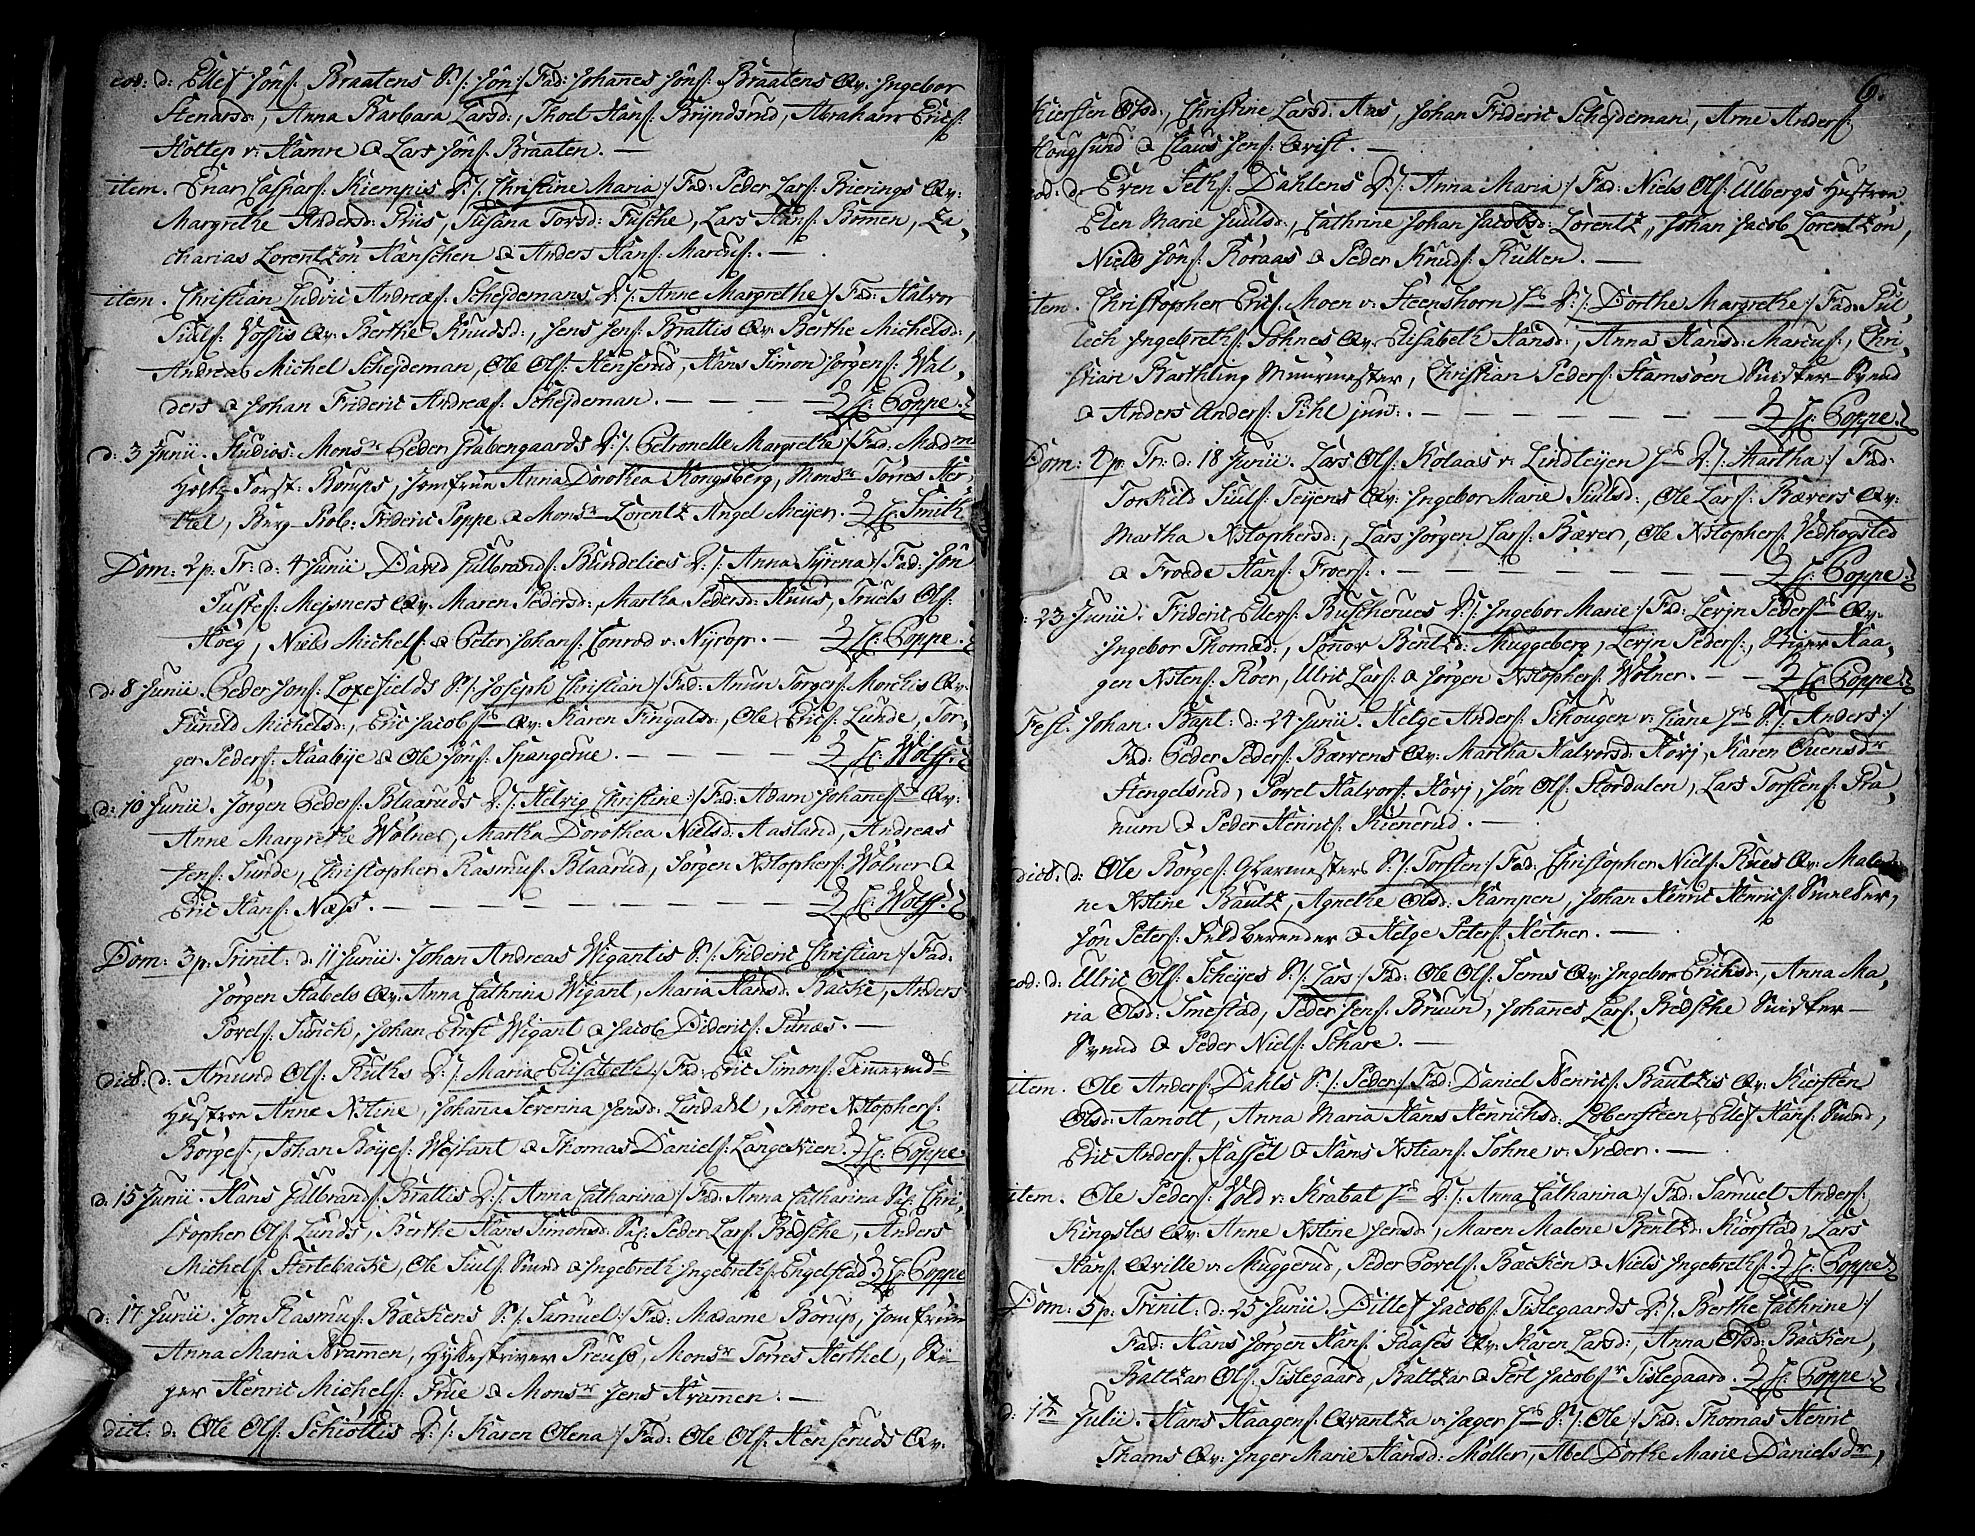 eod: d: Ellef Jöns: Braatens S: /: Jön :/ Fad: Johannes Jöns: Braatens Qv: Ingebor
Stenersd:, Anna Barbara Larsd:, Thoel Hans: Bryndsrud, Abraham Erics:
Kottep v: Hamre & Lars Jöns: Braaten. —
item. Enar Caspars: Kiempis D: /: Christine Maria :/ Fad: Peder Lars: Bierings Qv:
Margrethe Andersd: Priis, Susana Torsd: Fusche, Lars Hans: Bömen, Za,
charias Lorentzön Hænschen & Anders Hans: Marcus:. —
item. Christian Ludvic Andreæs: Schejdemans D: /: Anne Margrethe :/ Fad: Halvor
Siuls: Vossis Qv: Berthe Knudsd:, Jens Jens: Brattis Qv: Berthe Michelsd:,
Andreas Michel Schejdeman, Ole Ols: Henserud, Hans Simon Jörgens: Wal,
ders & Johan Frideric Andreæs: Schejdeman. — — — H: Poppe.
d: 3 Junii. Studios: Monsr Peder Grabengaards D: /: Petronelle Margrethe :/ Fad: Madme
Holtz Forst: Borups, Jomfrue Anna Dorothea Kongsberg, Monsr Torres Her,
thel, Berg Prob: Frideric Poppe & Monsr Lorentz Angel Meyer. H: Smith
Dom: 2 p: Tr: d: 4 Junii David Gulbrands: Bundelies D: /: Anna Syrena :/ Fad: Jön
Justes: Mejsners Qv: Maren Pedersd:, Martha Pedersd: Huus, Truels Ols:
Höeg, Niels Michels: & Peter Johans: Conrad v: Nyrop. — H: Poppe.
d: 8 Junii. Peder Jöns: Loxefields S: /: Joseph Christian :/ Fad: Anun Torgers: Morelis Qv:
Gunild Michelsd:, Eric Jacobs: Qv: Karen Fingalsd:, Ole Erics: Lunde, Tor,
ger Peders: Haabye & Ole Jöns: Spangerue. — — — H: Wolff.
d: 10 Junii. Jörgen Peders: Blaaruds D: /: Helvig Christine :/ Fad: Adam Johanes: Qv:
Anne Margrethe Wölner, Martha Dorothea Nielsd: Aasland, Andreas
Jens: Sunde, Christopher Rasmus: Blaarud, Jörgen Xstophers: Wölner &
Eric Hans: Næss. — — — — — H: Wolff.
Dom: 3 p: Trinit: d: 11 Junii. Johan Andreas Wigantis S: /: Frideric Christian :/ Fad:
Jörgen Stabels Qv: Anna Cathrina Wigant, Maria Hansd: Backe, Anders
Povels: Junch, Johan Ernst Wigant & Jacob Diderics: Funæs. —
dict: d: Amund Ols: Ruths D: /: Maria Elisabeth :/ Fad: Eric Simons: Simeruds
Hustrue Anne Xstine, Johana Severina Jensd: Lindahl, Thore Xstophers:
Börges:, Johan Böyes: Weifant & Thomas Daniels: Langeskien. H: Poppe.
d: 15 Junii. Hans Gulbrands: Brattis D: /: Anna Catharina :/ Fad: Anna Catharina Sal: Chri,
stopher Ols: Lunds, Berthe Hans Simonsd: Sal: Peder Lars: Bedsche, Anders
Michels: Stertebacke, Ole Siuls: Smed & Ingebreth Ingebreths: Engelstad. H: Poppe
d: 17 Junii. Jon Rasmus: Bæckens S: /: Samuel :/ Fad: Madame Borup, Jomfrue
Anna Maria Kramen, Hyttestriver Preuss, Monsr Torres Herthel, Sti,
ger Henric Michels: Frue & Monsr Jens Kramen. —
dict: d: Ole Ols: Schiöttis D: /: Karen Olena :/ Fad: Ole Ols: Henseruds Qv:
6.
Kiersten Olsd:, Christine Larsd: Aas, Johan Frideric Schejdeman, Arne Anders:
Hougsund & Claus Jens: Qvist. —
eod: d: Even Seths: Dahlens D: /: Anna Maria :/ Fad: Niels Ols: Ulbergs Hustrue
Elen Marie Juulsd:, Cathrine Johan Jacobsd: Lorentz, Johan Jacob Lorentzön,
Niels Jöns: Koraas & Peder Knuds: Rullen. —
item. Christopher Erics: Moen v: Steenshorn Hs D: /: Dorthe Margrethe :/ Fad: Pul,
lich Ingebreths: Sohnes Qv: Elisabeth Hansd:, Anna Hansd: Marcus:, Chri,
stian Barthling Muurmester, Christian Peders: Stamsöen Snidker Svend
& Anders Anders: Pihl jun:. — — — — H: Poppe.
Dom: 4 p: Tr: d: 18 Junii. Lars Ols: Kolaas v: Lindtejen Hs D: /: Martha :/ Fad:
Torkild Siuls: Tejens Qv: Ingebor Marie Siulsd:, Ole Lars: Bævers Qv:
Martha Xstophersd:, Lars Jörgen Lars: Bæver, Ole Xstophers: Vedhogsted
& Froede Hans: Froers:. — — — — H: Poppe.
d: 23 Junii. Frideric Ellefs: Buscherues D: /: Ingebor Marie :/ Fad: Lerjn Peders: Qv:
Ingebor Thomæd:, Sönov Bentzd: Muggeberg, Lerjn Peders:, Stiger Haa,
gen Xstens: Roer, Ulric Lars: & Jörgen Xstophers: Wölner. — — H: Poppe.
Fest: Johan: Bapt: d: 24 Junii. Helge Anders: Schougen v: Liane Hs S: /: Anders :/
Fad: Peder Peders: Bærrens Qv: Martha Halvorsd: Körj, Karen Evensdr
Stengelsrud, Povel Halvors: Körj, Jön Ols: Stordalen, Lars Torstens: Pra,
num & Peder Henrics: Kienerud. —
dict: d: Ole Börges: Glarmesters S: /: Torsten :/ Fad: Christopher Niels: Rues Qv: Male,
ne Xstine Bautz, Agnethe Olsd: Kampen, Johan Henric Henrics: Smelder,
Jön Peters: Guldberender & Helge Peters: Hertner. —
eod: d: Ulric Ols: Scheyes S: /: Lars :/ Fad: Ole Ols: Sems Qv: Ingebor Erichsd:, Anna Ma,
ria Olsd: Smestad, Peder Jens: Bruun, Johanes Lars: Bedsche Snidker —
Svend & Peder Niels: Schare. —
item. Ole Anders: Dahls S: /: Peder :/ Fad: Daniel Henrics: Bautzis Qv: Kiersten
Olsd: Aamolt, Anna Maria Hans Henrichsd: Löbensteen, Ellef Hans: Smed,
Eric Anders: Hassel & Hans Xstians: Sohne v: Sveder. —
item. Ole Peders: Vold v: Krabat Hs D: /: Anna Catharina :/ Fad: Samuel Anders:
Kingsles Qv: Anne Xstine Jensd:, Maren Malene Bentzd: Kiörstad, Lars
Hans: Qville v: Muggerud, Peder Povels: Bæcken & Niels Ingebreths: H: Poppe.
Dom: 5 p: Trinit: d: 25 Junii. Dillef Jacobs: Tislegaards D: /: Berthe Cathrine :/
Fad: Hans Jörgen Hans: Paases Qv: Karen Larsd:, Anna Olsd: Bæcken,
Baltzar Ols: Tislegaard, Baltzar & Perl Jacobs: Tislegaard. H: Poppe.
d: 1te Julii. Hans Haagens: Qvantza v: Jæger Hs S: /: Ole :/ Fad: Thomas Henric
Thams Qv: Inger Marie Hansd: Möller, Abel Dorthe Marie Danielsdr,